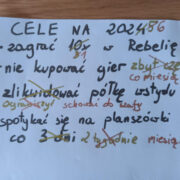 CELE NA 2024 86
· zagrać 10x w Rebelię
81
· nie kupować gier zbyt często
co miesiąc
zlikwidować półkę wstydu
ograniczyć schować do szafy
spotykać się na planszówki
co 3 dni 2 tygodnie miesiąc